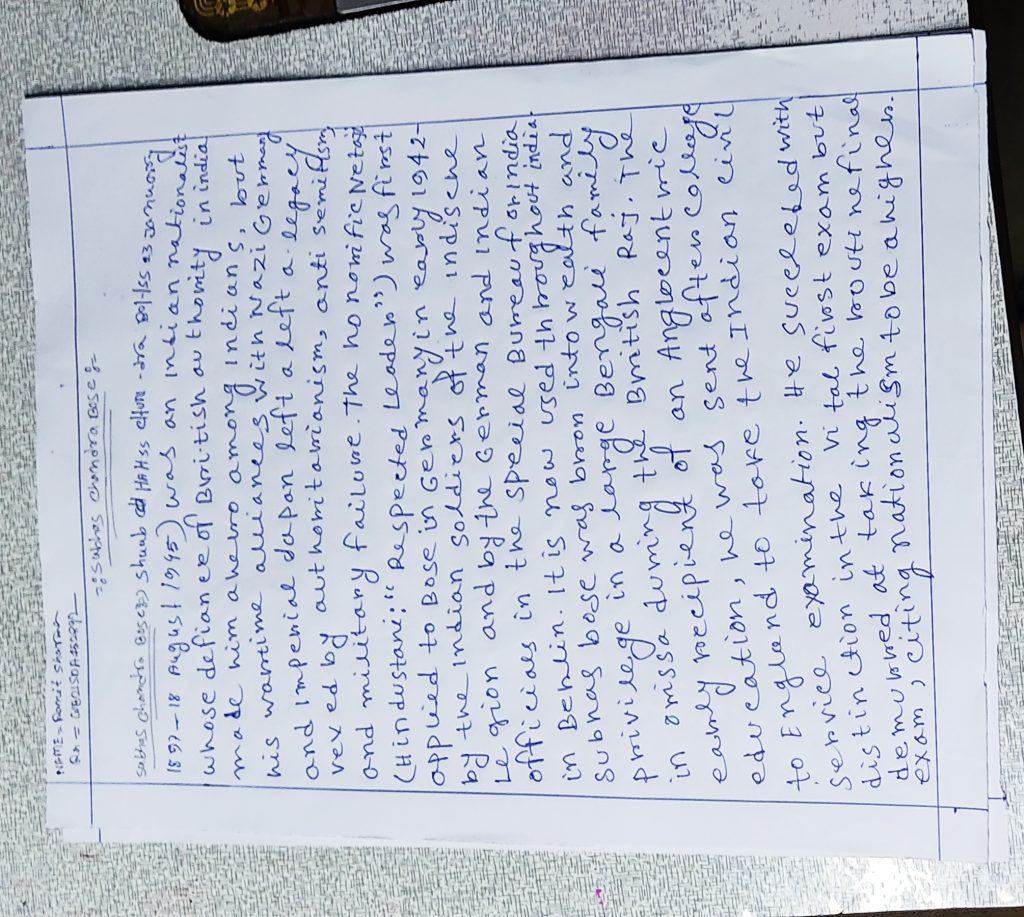 NAME =
Rn =
-: Subhas chandra Bose :-
Subhas chandra Bose 23 January
1897 - 18 August 1945) was an Indian nationalist
whose defiance of British authority in india
made him a hero among Indians, but
his wartime alliances with Nazi Germany
and Imperial Japan left a left a legacy
vexed by authoritarianism, anti semitism,
and military failure. The honorific Netaji
(Hindustani: "Respected Leader") was first
applied to Bose in Germany in early 1942-
by the Indian soldiers of the indische
Legion and by the German and Indian
officials in the special Bureau for India
in Berlin. It is now used throughout india.
Subhas bose was bron into wealth and
privilege in a large Bengali family
in orissa during the British Raj. The
early recipient of an Anglocentric
education, he was sent after college
to England to take the Indian civil
service examination. He succeeded with
distinction in the vital first exam but
demurred at taking the routine final
exam, citing nationalism to be a higher.